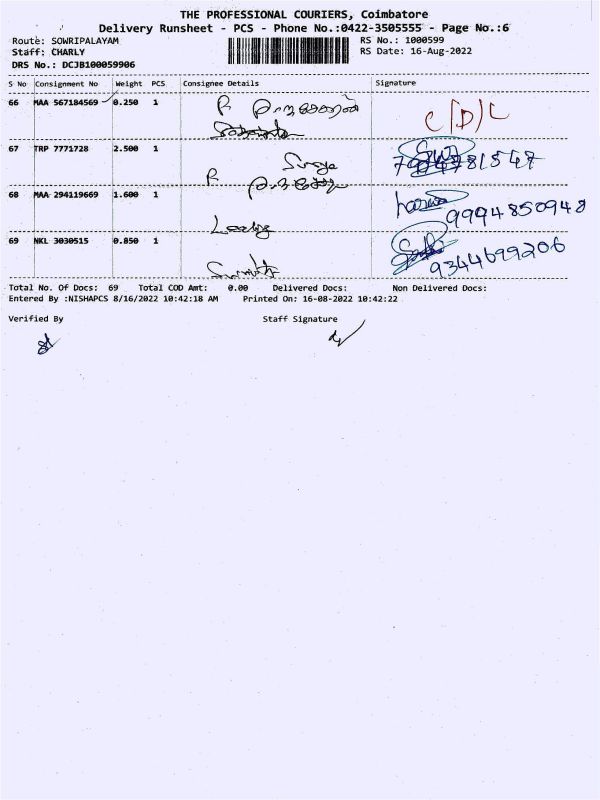 THE PROFESSIONAL COURIERS, Coimbatore
Delivery Runsheet - PCS - Phone No.:0422-3505555 - Page No.:6
Route: SOWRIPALAYAM
RS No.: 1000599
Staff: CHARLY
RS Date: 16-Aug-2022
DRS No.: DCJB100059906
S No Consignment No Weight PCS Consignee Details Signature
66 MAA 567184569 0.250 1
C/D/L
67 TRP 7771728 2.500 1
Surya
68 MAA 294119669 1.600 1
9994850948
69 NKL 3030515 0.850 1
9344699206
Total No. Of Docs: 69 Total COD Amt: 0.00 Delivered Docs: Non Delivered Docs:
Entered By :NISHAPCS 8/16/2022 10:42:18 AM Printed On: 16-08-2022 10:42:22
Verified By Staff Signature